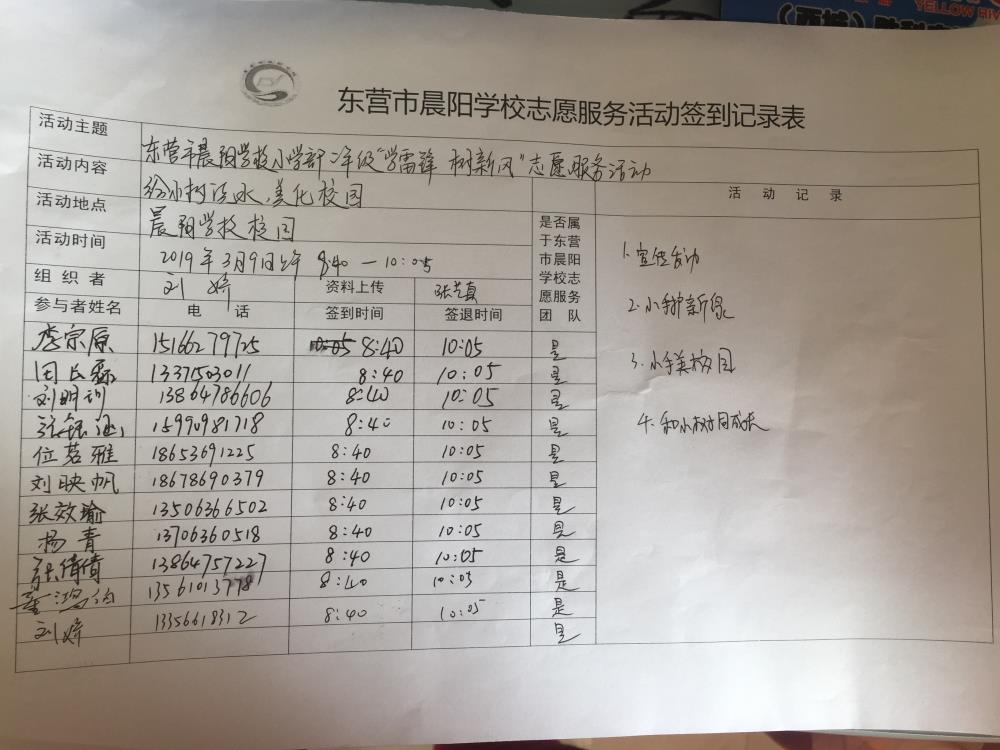 YELLOW RIV
东营市晨阳学校志愿服务活动签到记录表
活动主题 东营市晨阳学校小学部二年级“学雷锋 树新风”志愿服务活动
活动内容 给小树浇水、美化校园
活动地点 晨阳学校校园
活动时间 2019年3月9日上午 8:40 — 10:05
组织者 刘婷 资料上传
参与者姓名 电话 签到时间 签退时间 是否属于东营市晨阳学校志愿服务团队
活动记录
李宗原 15166279725 8:40 10:05 是
13371503011 8:40 10:05 是
刘明训 13864786606 8:40 10:05 是
15990981718 8:40 10:05 是
位茗雅 18653691225 8:40 10:05 是
刘映帆 18678690379 8:40 10:05 是
张效瑜 13506366502 8:40 10:05 是
杨青 13706360518 8:40 10:05 是
张倩倩 13864757227 8:40 10:05 是
13561013778 8:40 10:05 是
刘婷 13356618312 8:40 10:05 是
是
1.宣传发动
2.小手护新绿
3.小手美校园
4.和小树同成长